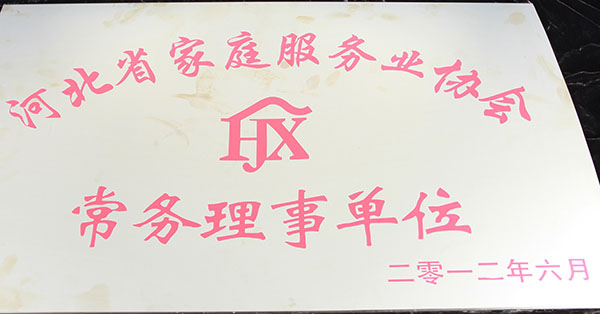 河北省家庭服务业协会
HJX
常务理事单位
二零一二年六月